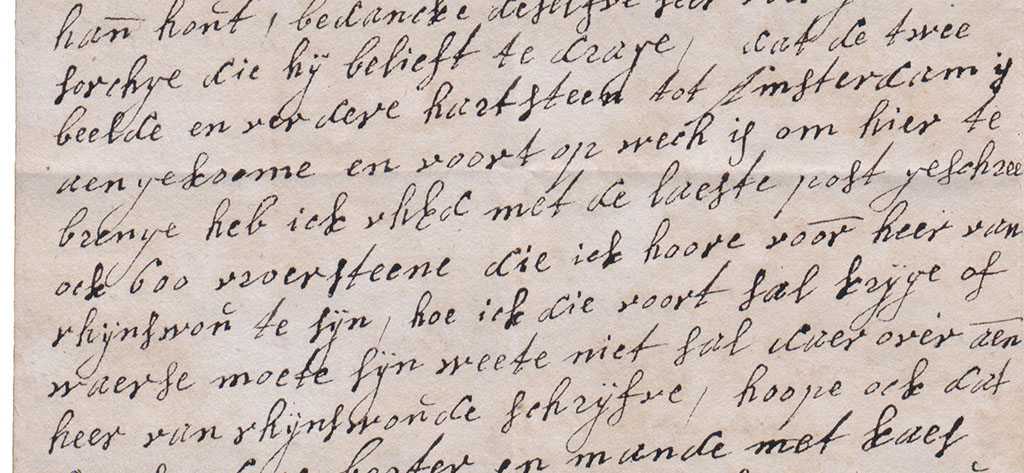 han hout, bedancke deselfve seer voor
sorchge die hÿ belieft te drage, dat de twee
beelde en verdere hartsteen tot Amsterdam is
aengekoome en voort op wech is om hier te
brenge heb ick uhEd met de laeste post geschree
ock 600 vloersteene die ick hoore voor heer van
rhÿnswou te sÿn, hoe ick die voort sal krÿge of
waerse moete sÿn weete niet sal daer over aen
heer van rhÿnswoude schrÿfve, hoope ock dat
en mande met kaes